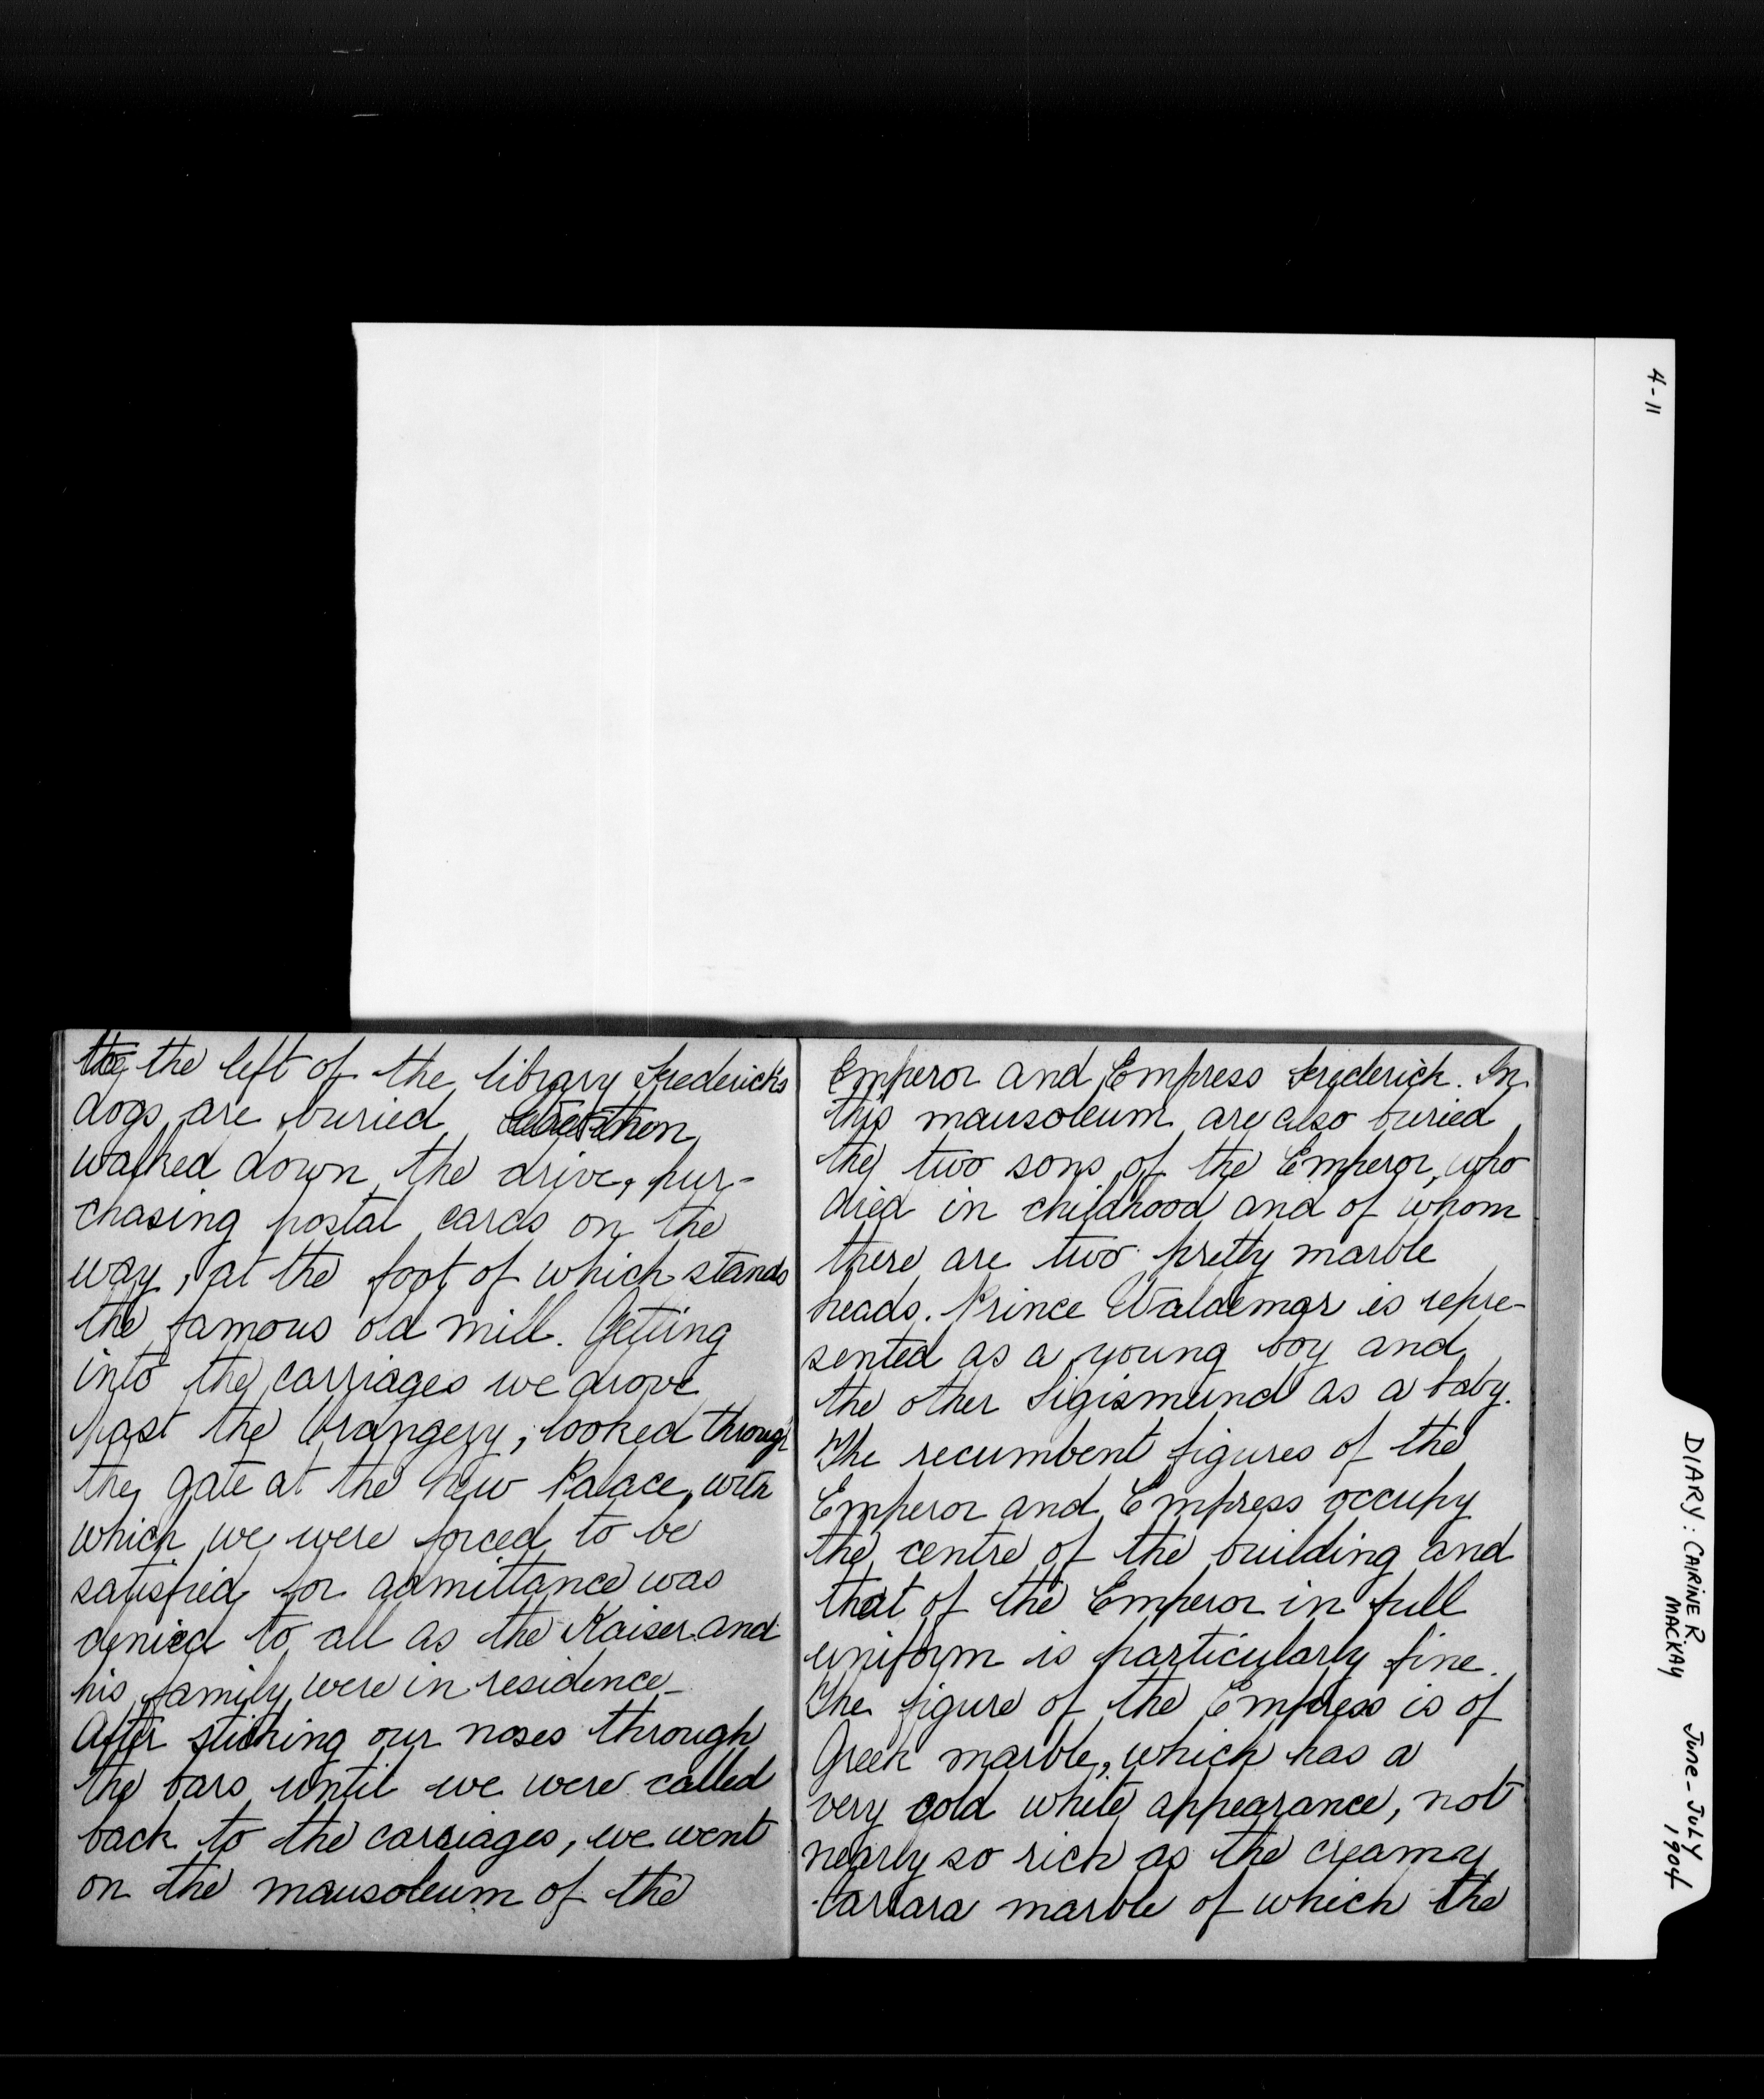 the left of the library Frederick's
dogs are buried We then
walked down the drive, pur-
chasing postal cards on the
way, at the foot of which stands
the famous old mill. Getting
into the carriages we drove
past the Orangery, looked through
the gate at the New Palace, with
which we were forced to be
satisfied for admittance was
denied to all as the Kaiser and
his family were in residence_
After sticking our noses through
the bars until we were called
back to the carriages, we went
on the mausoleum of the
Emperor and Empress Frederick. In
this mausoleum are also buried
the two sons of the Emperor, who
died in childhood and of whom
there are two pretty marble
heads. Prince Waldemar is repre-
sented as a young boy and
the other Sigismund as a baby.
The recumbent figures of the
Emperor and Empress occupy
the centre of the building and
that of the Emperor in full
uniform is particularly fine.
The figure of the Empress is of
Greek marble, which has a
very cold white appearance, not
nearly so rich as the creamy
Carrara marble of which the
4-11
DIARY: CAIRINE R
MACKAY
June-July
1904